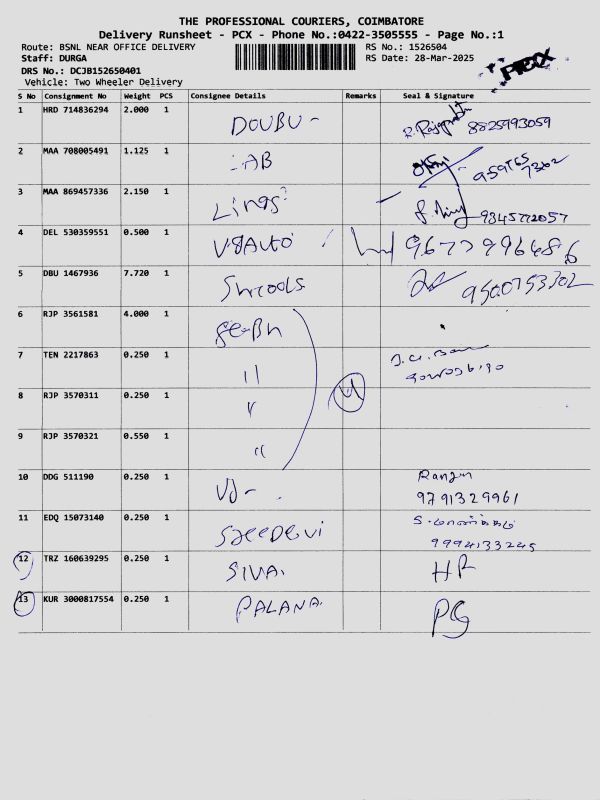 THE PROFESSIONAL COURIERS, COIMBATORE
Delivery Runsheet - PCX - Phone No.:0422-3505555 - Page No.:1
Route: BSNL NEAR OFFICE DELIVERY RS No.: 1526504
Staff: DURGA RS Date: 28-Mar-2025
DRS No.: DCJB152650401
Vehicle: Two Wheeler Delivery
S No Consignment No Weight PCS Consignee Details Remarks Seal & Signature
1 HRD 714836294 2.000 1 DOUBU - 8825993059
2 MAA 708005491 1.125 1
3 MAA 869457336 2.150 1 9345772057
4 DEL 530359551 0.500 1 V8AUTO 9677996486
5 DBU 1467936 7.720 1 9500753302
6 RJP 3561581 4.000 1
7 TEN 2217863 0.250 1 〃
8 RJP 3570311 0.250 1 〃 4
9 RJP 3570321 0.550 1 〃
10 DDG 511190 0.250 1 9791329961
11 EDQ 15073140 0.250 1 SREEDEVI 9994133245
12 TRZ 160639295 0.250 1 SIVA. HP
13 KUR 3000817554 0.250 1 PALANA. PG